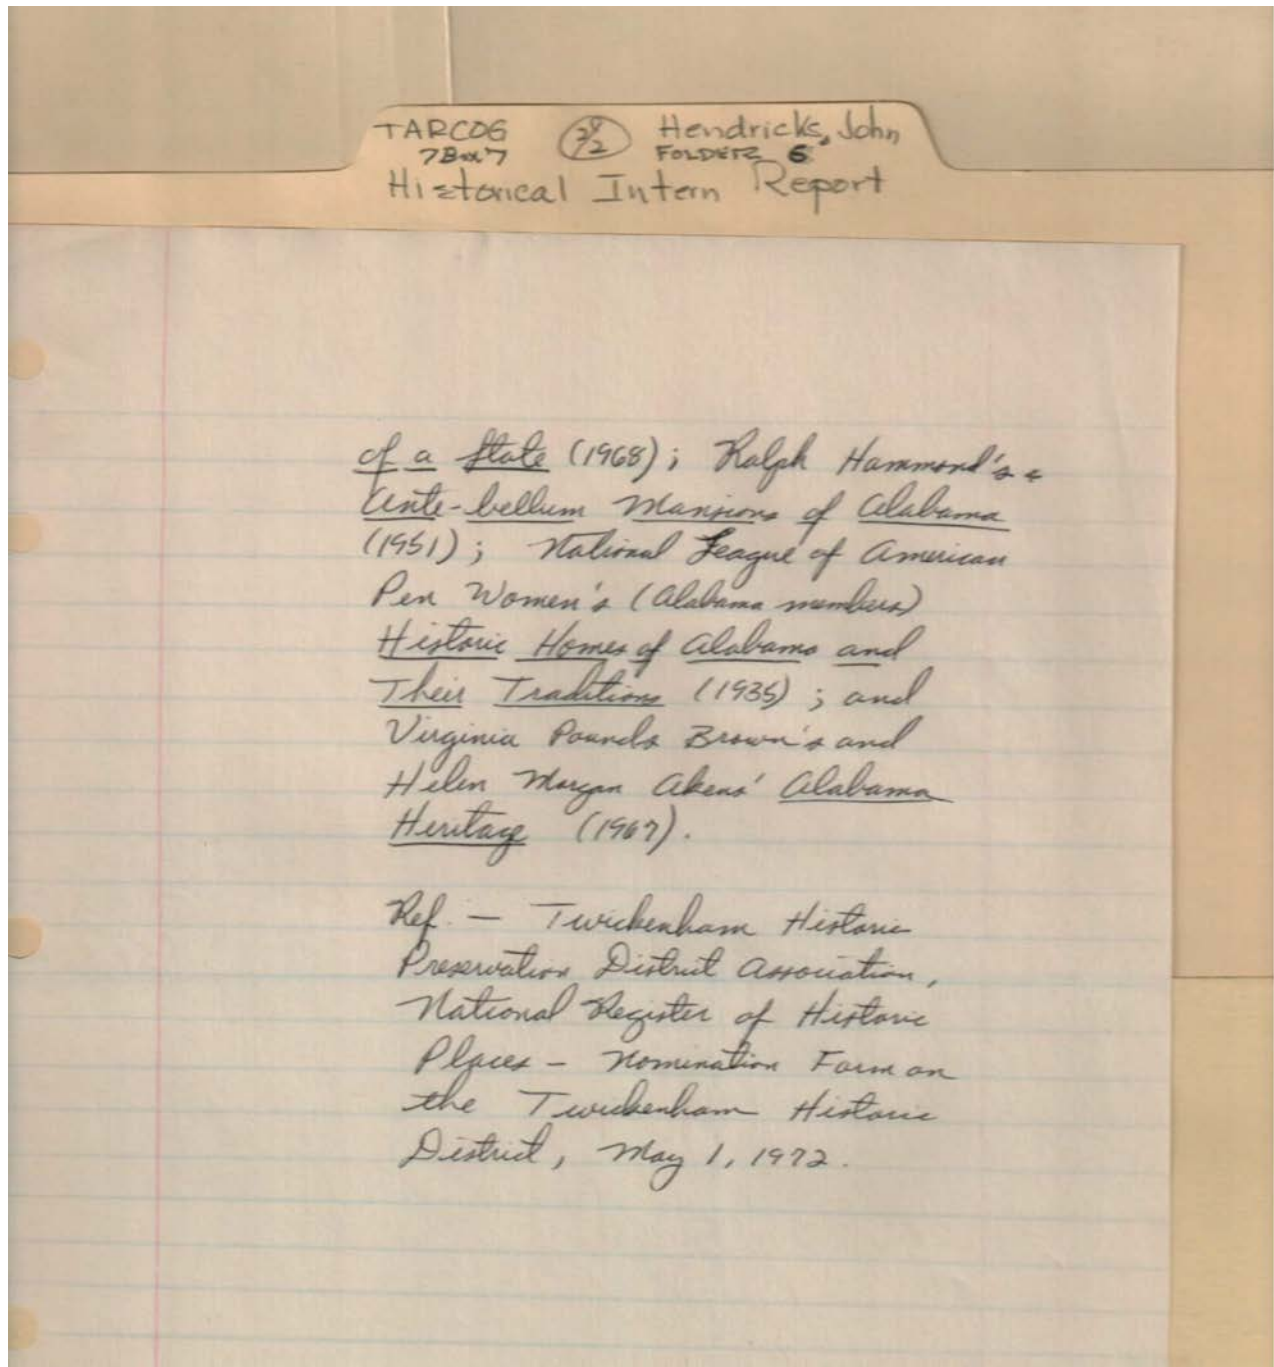 TARCOG Hendricks, John
7Box7 FOLDER 6
Historical Intern Report
of a State (1968); Ralph Hammond's
Ante-bellum Mansions of Alabama
(1951); National League of American
Pen Women's (Alabama members)
Historic Homes of Alabama and
Their Traditions (1935); and
Virginia Pounds Brown's and
Helen Morgan Akens' Alabama
Heritage (1967).
Ref. — Twickenham Historic
Preservation District Association,
National Register of Historic
Places — Nomination Form on
the Twickenham Historic
District, May 1, 1972.